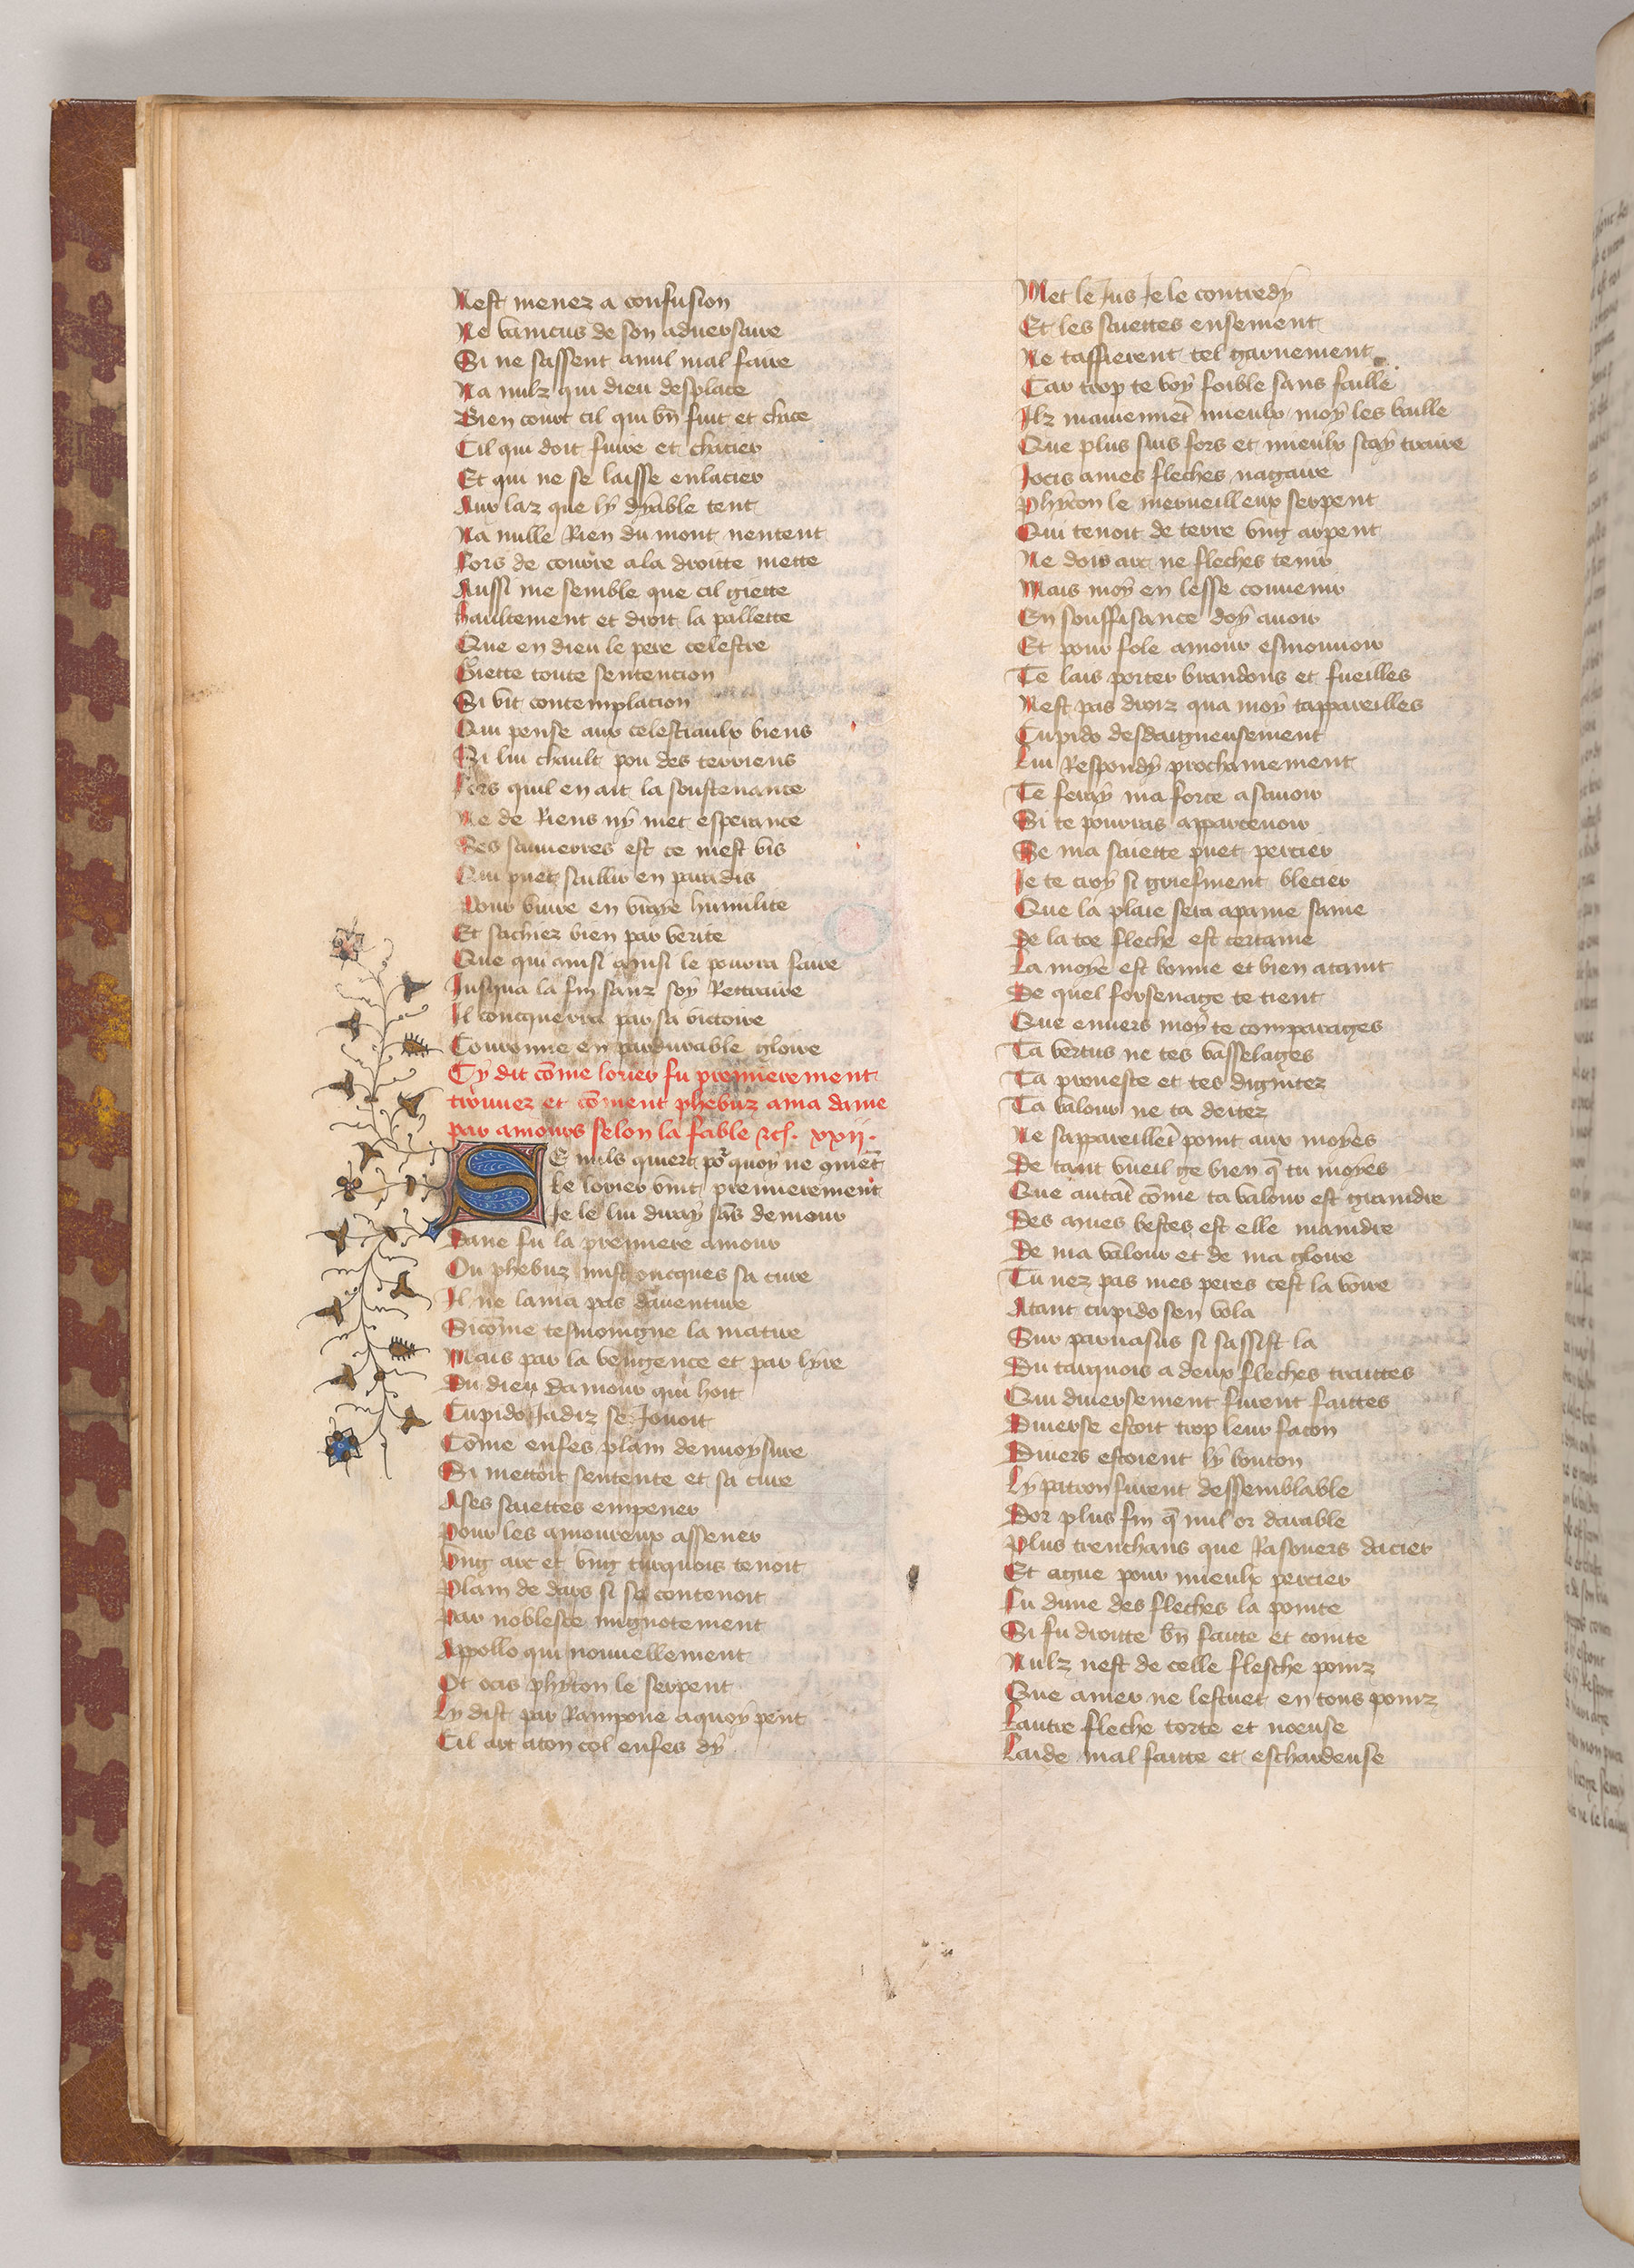 Nest menez a confusion
Ne vaincus de son adversaire
Si ne sassent a nul mal faire
Na nulz qui dieu desplace
Bien court cil qui bn̄ fuit et chace
Cil qui doit fuire et chacier
Et qui ne se laisse enlacier
Aux laz que ly dyable tent
Na nulle Rien du mont nentent
Fors de courre a la droitte mette
Aussi me semble que cil giette
haultement et droit la pallette
Que en dieu le pere celestre
Giette toute sentencion
Si vit contemplacion
Qui pense aux celestiaulx biens
Si lui chault pou des terriens
Fors quil en ait la soustenance
Ne de Riens ny met esperance
Ses sauuerres est ce mest vis
Qui puet saillir en paradis
Pour viure en vraye humilite
Et sachiez bien par verite
Que qui ainsi ainsi le pourra faire
Jusqua la fin sanz soy Rettraire
Il concquerra par sa victoire
Couronne en pardurable gloire
Cy dit cōme lorier fu premierement
trouuez et cōment phebuz ama dame
par amours selon la fable xxij.
SE nuls quiert por quoy ne qmēt
Le lorier vint premierement
Je le lui diray sās demour
Dane fu la premiere amour
Ou phebuz mist oncques sa cure
Il ne lama pas dauenture
Sicōme tesmoingne la matire
Mais par la vengence et par lyre
Du dieu damour qui hoit
Cupido Jadiz se Jouoit
Cōme enfes plain denuoysure
Si mettoit sentente et sa cure
A ses saiettes empener
Pour les amoureux assener
Vng arc et vng turquois tenoit
Plain de dars si se contenoit
Par noblesce mignotement
Appollo qui nouuellement
Ot ocis phyton le serpent
Ly dist par Rampone a quoy pent
Cil arc a ton col enfes dy
Met le Jus Je le contredy
Et les saiettes ensement
Ne taffierent tel garnement
Car trop te voy foible sans faille
Ilz mauiennēt mieulx moy les baille
Que plus suis fors et mieulx scay traire
Jocis a mes fleches nagaire
Phyton le merueilleux serpent
Qui tenoit de terre vng arpent
Ne dois arc ne fleches tenir
Mais moy en lesse conuenir
En souffisance doy auoir
Et pour fole amour esmouuoir
Te lais porter brandons et fueilles
Nest pas droiz qua moy tappareilles
Cupido desdaigneusement
Lui Respondy prochainement
Te feray ma force a sauoir
Si te pourras apparceuoir
Se ma saiette puet percier
Je te croy si griefment blecier
Que la plaie sera a paine saine
Se la toe fleche est certaine
La moye est bonne et bien ataint
De quel forsenage te tient
Que enuers moy te comparages
Ta vertus ne tes vasselages
Ta prouesce et tes dignitez
Ta valour ne ta deitez
Ne sappareillēt point aux moyes
De tant vueil ge bien q̄ tu moyes
Que autāt cōme ta valour est graindre
Des mues bestes est elle maindre
De ma valour et de ma gloire
Tu nez pas mes peres cest la voire
Atant cupido sen vola
Sur parnasus si sassist la
Du turquois a deux fleches traittes
Qui diuersement furent faittes
Diuerse estoit trop leur facon
Diuers estoient ly bouton
Ly patron furent dessemblable
Dor plus fin q̄ nul or darable
Plus trenchans que Rasouers dacier
Et ague pour mieulx percier
Fu dune des fleches la pointe
Si fu droitte bn̄ faitte et cointe
Nulz nest de celle flesche poinz
Que amer ne lestuet en tous poinz
Lautre fleche torte et noeuse
Laide mal faitte et eschardeuse